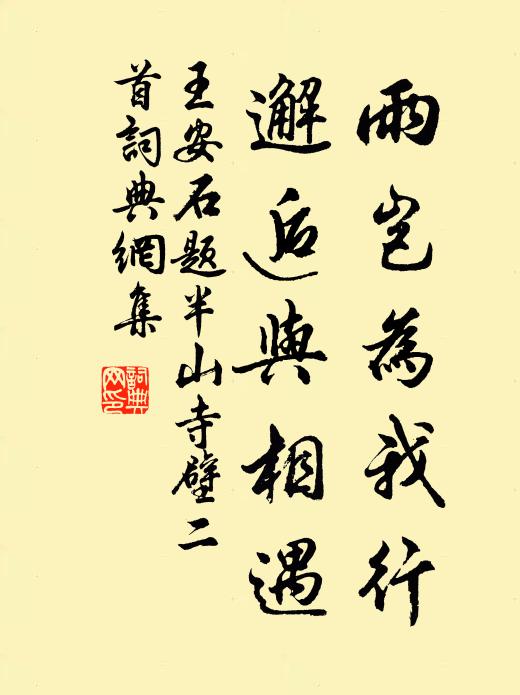 雨豈為我行
邂逅與相遇
王安石題半山寺壁二
首詞典網集
詞典網印